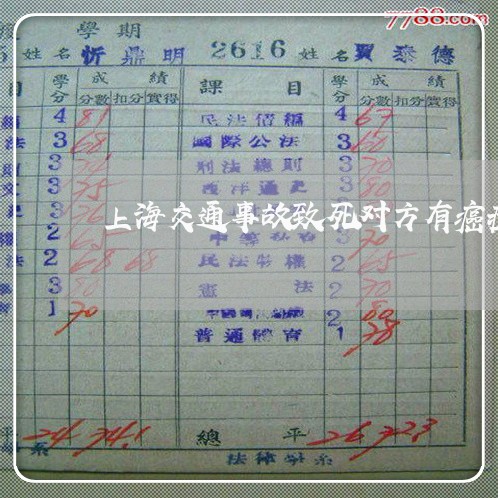 7788.com
學期
5 姓名 忻鼎明 2616 姓名 賈泰德
目 學分 成績 課目 學分 成績
分數 扣分 實得 分數 扣分 實得
4 81 民法債編 4 67
法 3 68 國際公法 3 60
則 3 刑法總則 3 70
3 75 西洋通史 3 80
3 76 3
上海交通事故致死对方有癌
權 2 65 3 70
法 2 68 68 民法物權 2 65
3 80 憲法 2 70
育 1 70 2 80
普通體育 1 78
平 24 74.1 總平 26 72.3
系 法律學系